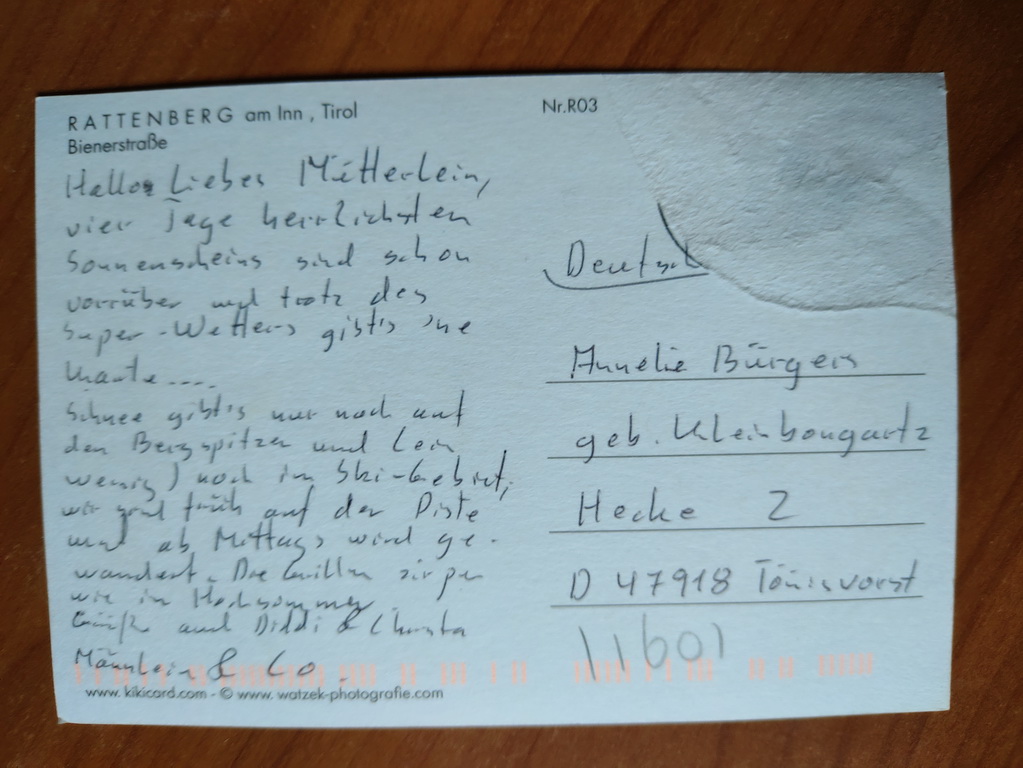 RATTENBERG am Inn, Tirol
Bienerstraße
Nr.R03
Hallo Liebes Mütterlein,
vier Tage herrlichsten
Sonnenscheins sind schon
vorrüber und trotz des
Super-Wetters gibt's 'ne
Karte....
Schnee gibt's nur noch auf
den Bergspitzen und (ein
wenig) noch im Ski-Gebiet,
wir sind früh auf der Piste
und ab Mittags wird ge-
wandert. Die Grillen zirpen
wie im Hochsommer
Grüße auch Diddi & Christa
Männlein & Co.
www.kikicard.com - © www.watzek-photografie.com
Deutschl
Annelie Bürgers
geb. Kleinbongartz
Hecke 2
D 47918 Tönisvorst
11601